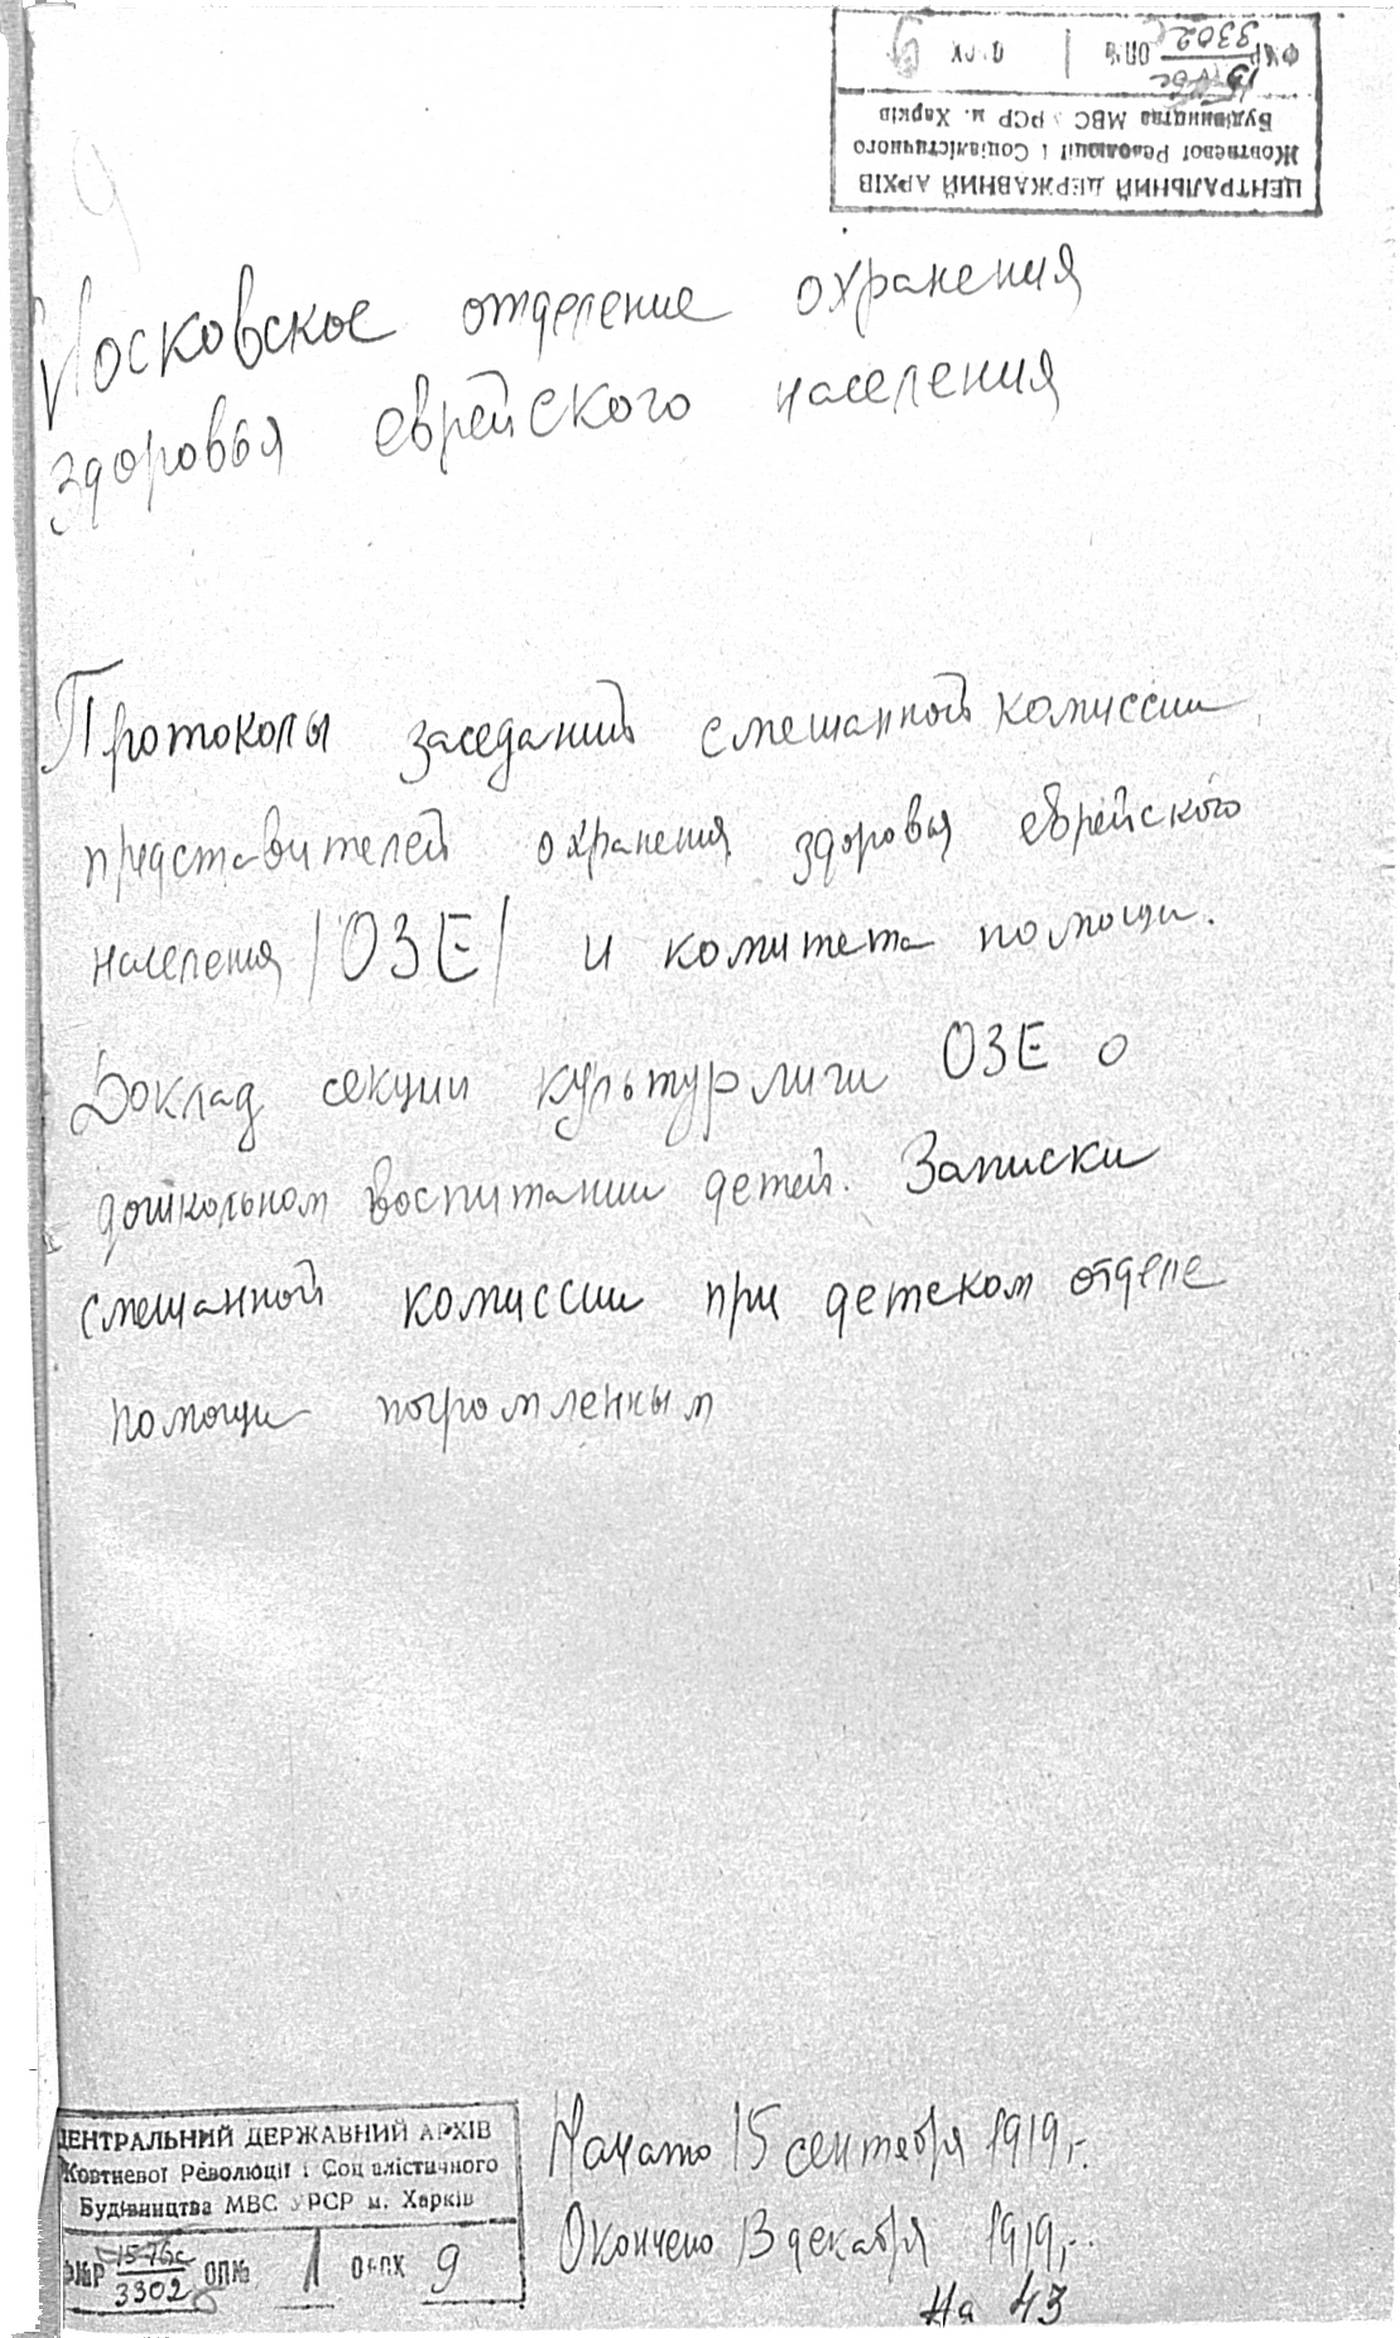 ЦЕНТРАЛЬНИЙ ДЕРЖАВНИЙ АРХІВ
Жовтневої Революції і Соціалістичного
Будівництва МВС УРСР м. Харків
Ф№Р 3302 ОП№ 1 9
9
Московское отделение охранения
здоровья еврейского населения
Протоколы заседаний смешанной комиссии
представителей охранения здоровья еврейского
населения /ОЗЕ/ и комитета помощи.
Доклад секции культурлиги ОЗЕ о
дошкольном воспитании детей. Записки
смешанной комиссии при детском отделе
помощи погромленным
Начато 15 сентября 1919 г.
Окончено 13 декабря 1919 г.
На 43
ЦЕНТРАЛЬНИЙ ДЕРЖАВНИЙ АРХІВ
Жовтневої Революції і Соціалістичного
Будівництва МВС УРСР м. Харків
Ф№Р 1576с ОП№ 1 9
3302